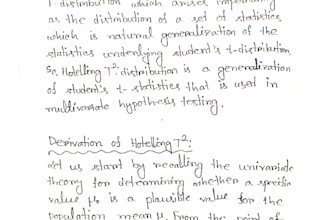 T-distribution which arises importantly
as the distribution of a set of statistics
which is natural generalization of the
statistics underlying student's t-distribution.
So, Hotelling T² distribution is a generalization
of student's t-statistics that is used in
multivariate hypothesis testing.
Derivation of Hotelling T²:
Let us start by recalling the univariate
theory for determining whether a specific
value μ₀ is a plausible value for the
population mean μ. From the point of